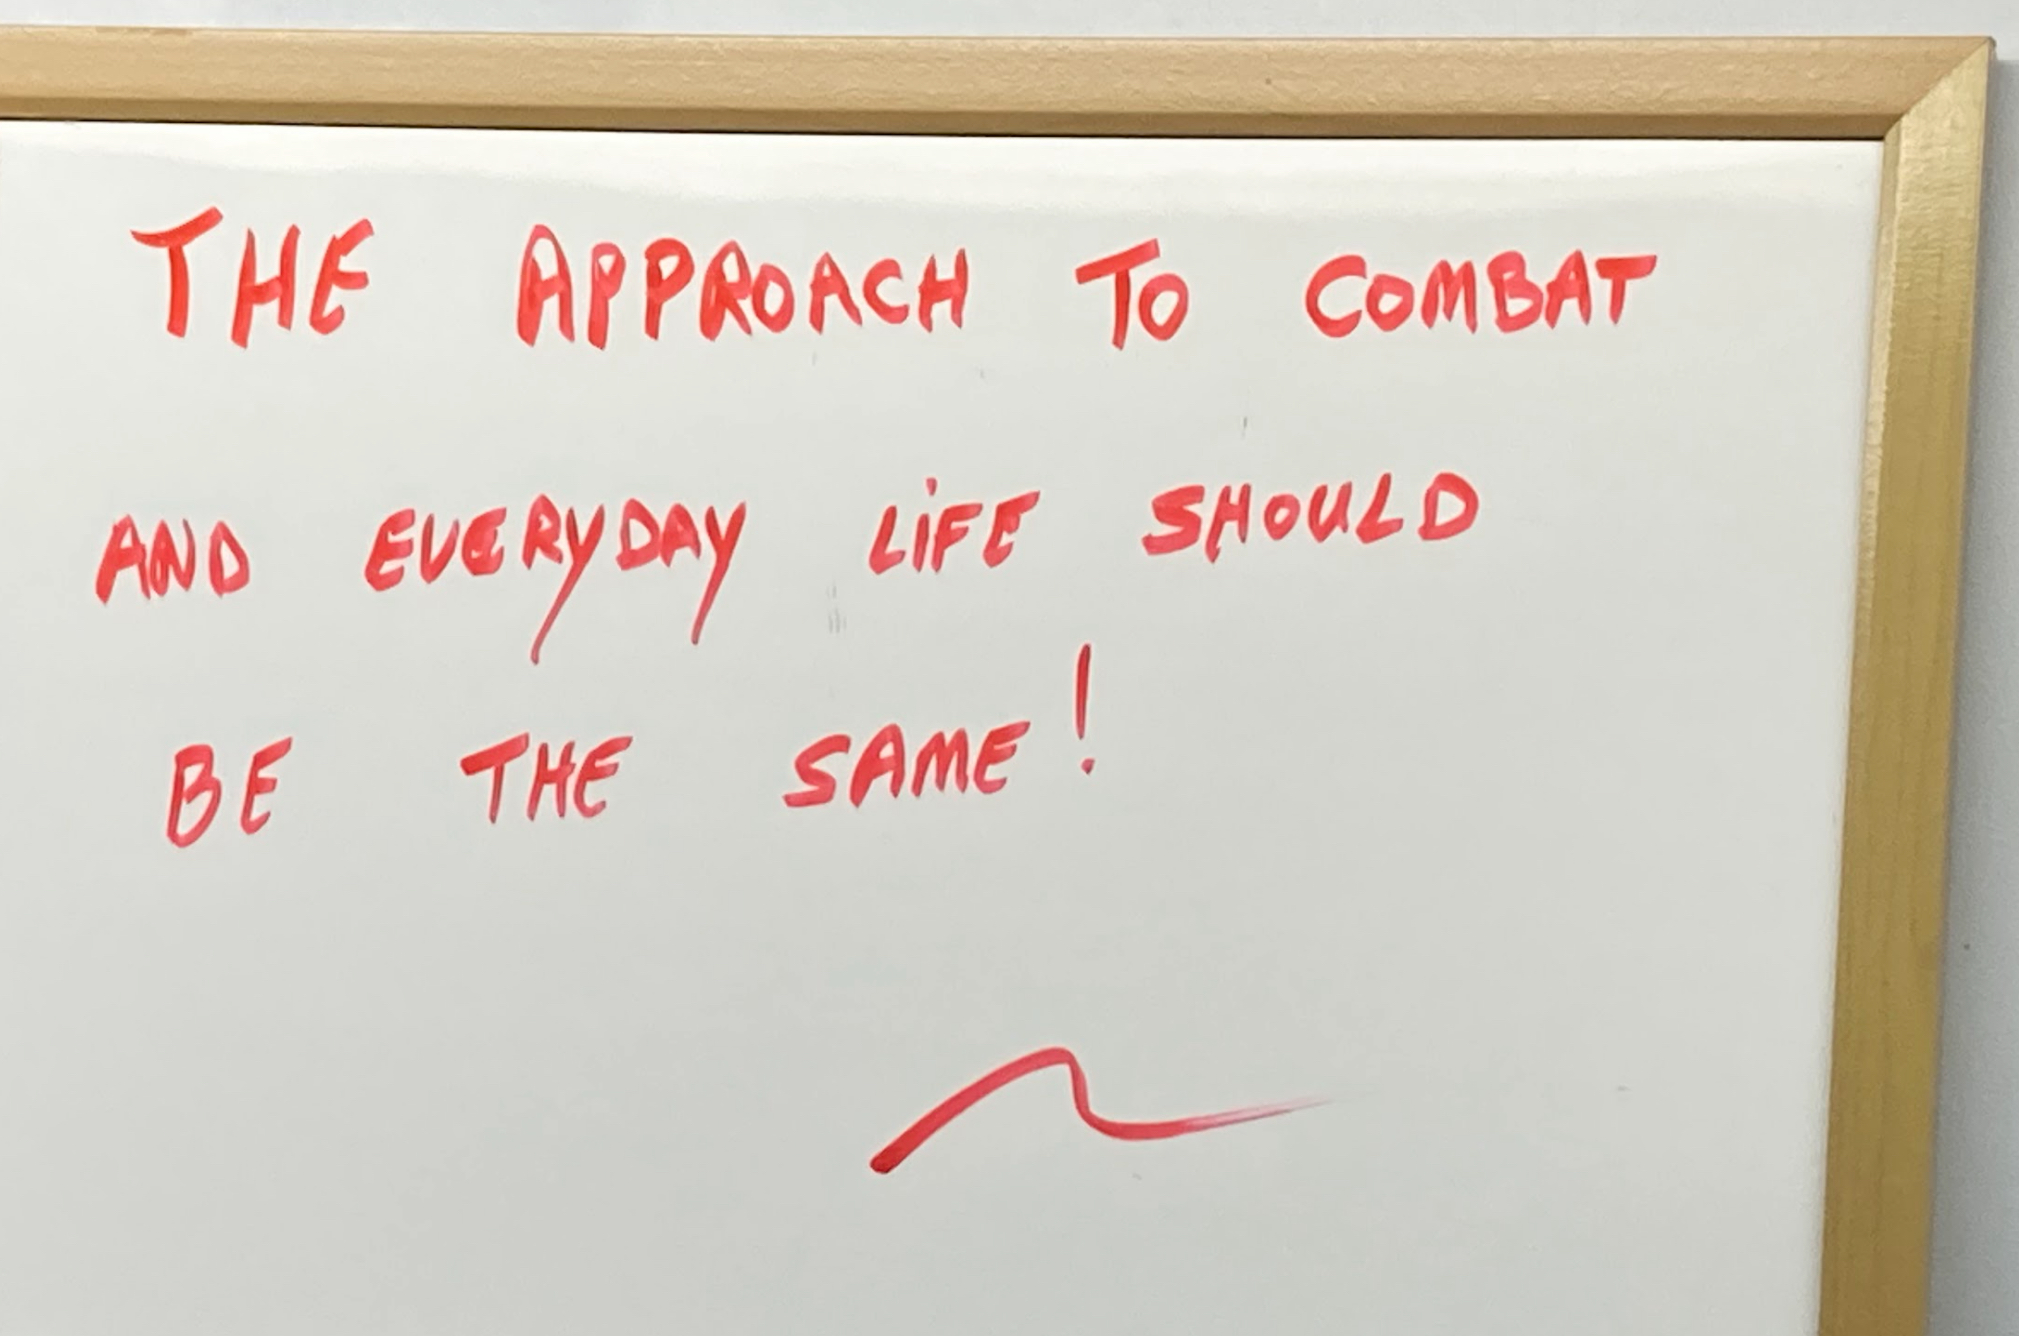 THE APPROACH TO COMBAT
AND EVERYDAY LiFE SHOULD
BE THE SAME!